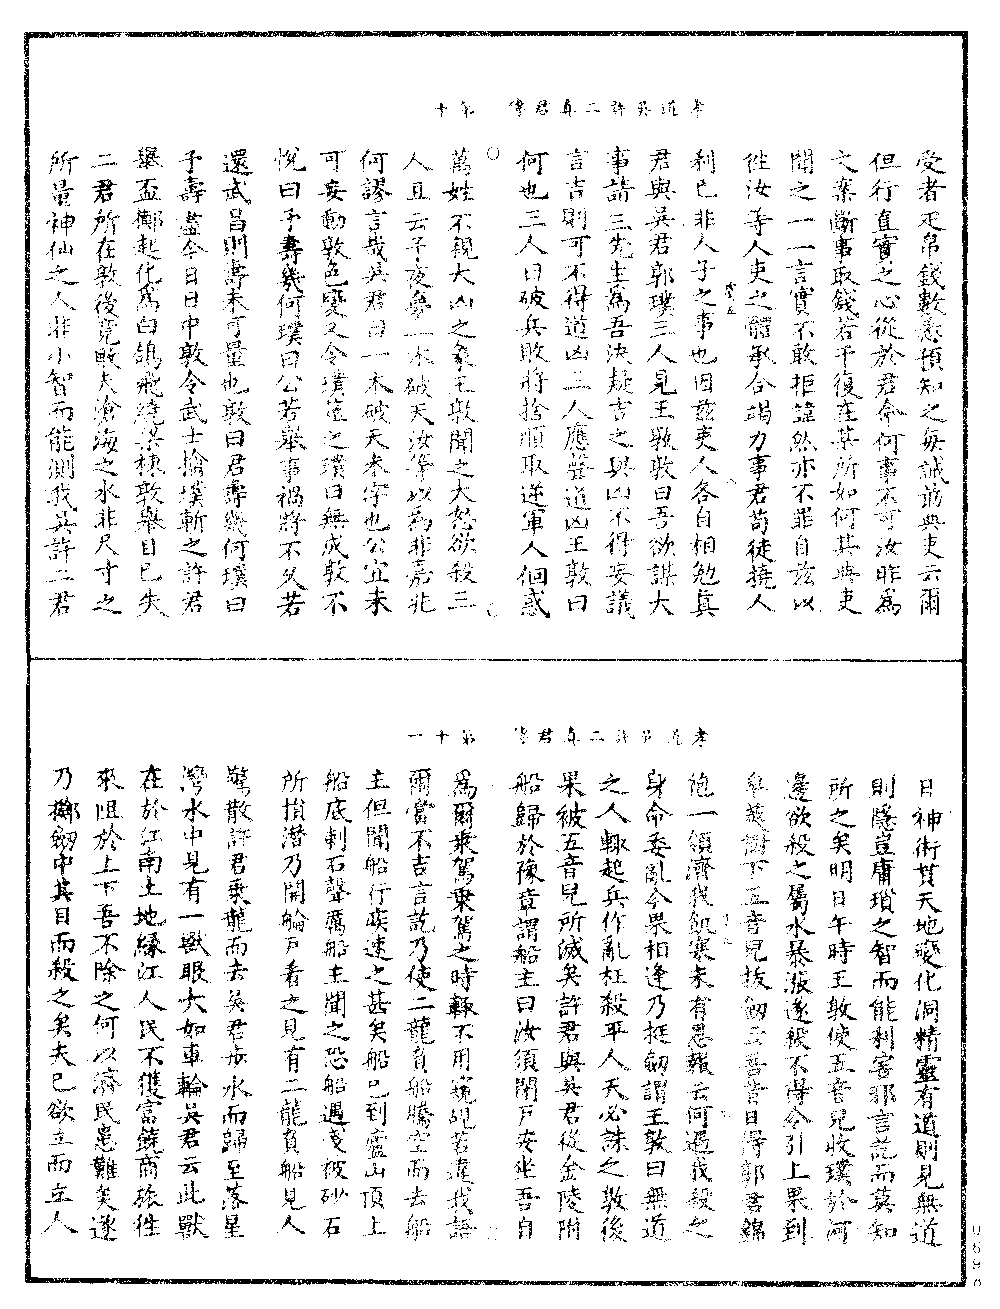 孝道吳許二真君傳　第十
受者疋帛錢數悉預知之每誡前典吏云爾
但行直實之心從於君命何事不可汝昨為
之案斷事取錢若干復在某所如何其典吏
聞之一一言實不敢拒諱然亦不罪自茲以
往汝等人吏之體承合竭力事君苟徒撓人
利己非人子之事也因茲吏人各自相勉真
君與吳君郭璞三人見王敦敦曰吾欲謀大
事請三先生為吾決疑吉之與凶不得妄議
言吉則可不得道凶三人應聲道凶王敦曰
何也三人曰破兵敗將捨順取逆軍人徊惑
萬姓不親大凶之象王敦聞之大怒欲殺三
人且云予夜夢一木破天汝等以為非嘉兆
何謬言哉吳君曰一木破天未字也公宜未
可妄動敦色變又令璞筮之璞曰無成敦不
悅曰予壽幾何璞曰公若舉事禍將不久若
還武昌則壽未可量也敦曰君壽幾何璞曰
予壽盡今日日中敦令武士擒璞斬之許君
舉盃擲起化為白鴿飛繞梁棟敦舉目已失
二君所在敦後竟敗夫滄海之水非尺寸之
所量神仙之人非小智而能測我吳許二君
孝道吳許二真君傳　第十一
日神術貫天地變化洞精靈有道則見無道
則隱豈庸瑣之智而能利害邪言訖而莫知
所之矣明日午時王敦使五音兒收璞於河
邊欲殺之屬水暴漲遂殺不得令引上果到
皁莢樹下五音兒拔劒五音昔日得郭君錦
袍一領濟我飢寒未有恩報云何遇我殺之
身命委亂今果相逢乃挺劒謂王敦曰無道
之人輒起兵作亂枉殺平人天必誅之敦後
果被五音兒所滅矣許君與吳君從金陵附
船歸於豫章謂船主曰汝須閉戶安坐吾自
為爾乘駕乘駕之時輒不用窺覘若違我語
爾當不吉言訖乃使二龍負船騰空而去船
主但聞船行疾速之甚矣船已到廬山頂上
船底刺石聲厲船主聞之恐船遇淺被砂石
所損潛乃開船戶看之見有二龍負船見人
驚散許君乘龍而去吳君步水而歸至落星
灣水中見有一獸眼大如車輪吳君云此獸
在於江南土地緣江人民不獲富饒商旅往
來阻於上下吾不除之何以濟民患難矣遂
乃擲劒中其目而殺之矣夫已欲立而立人